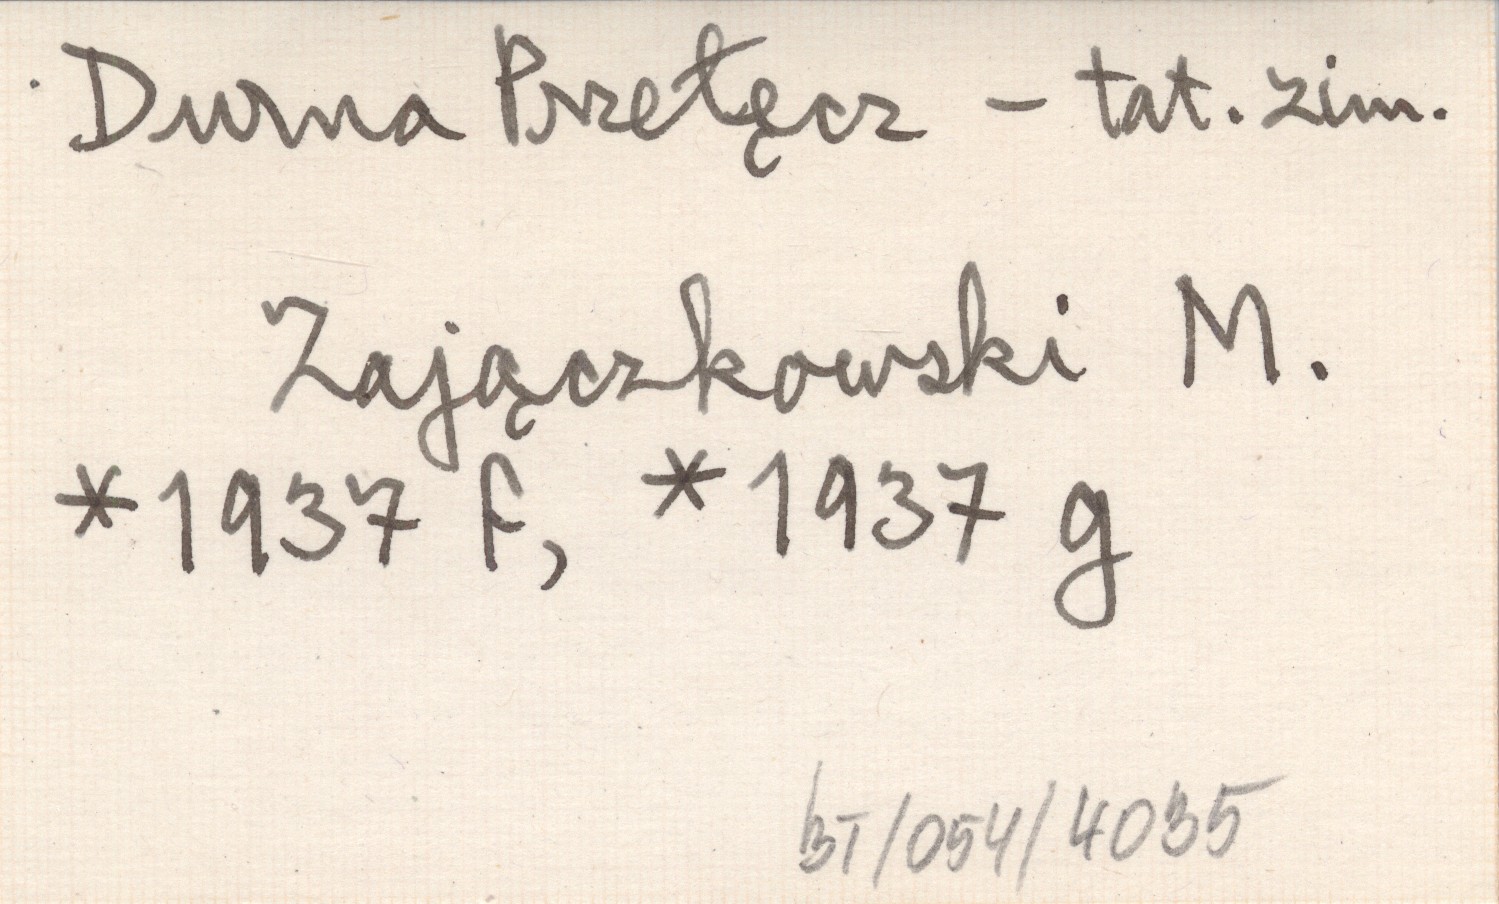 Durna Przełęcz – tat. zim.
Zajączkowski M.
*1937 f, *1937 g
BT/054/4035